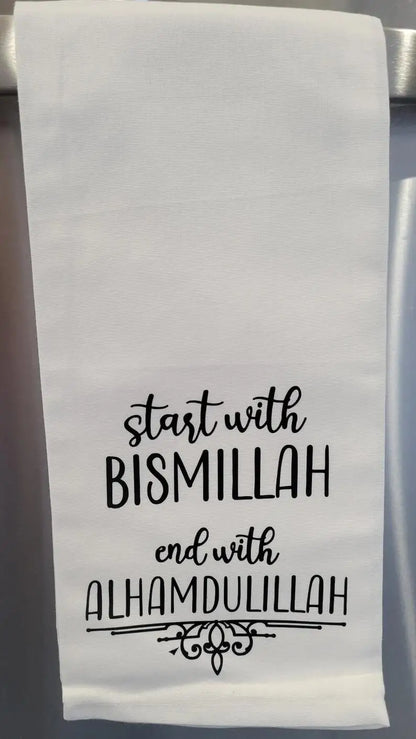 start with
BISMILLAH
end with
ALHAMDULILLAH